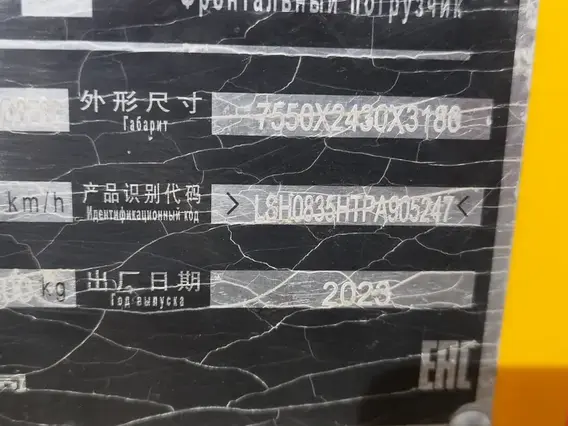 Фронтальный погрузчик
外形尺寸 7550X2430X3180
Габарит
km/h 产品识别代码 > LSH0835HTPA905247 <
Идентификационный код
kg 出厂日期 2023
Год выпуска
EAC